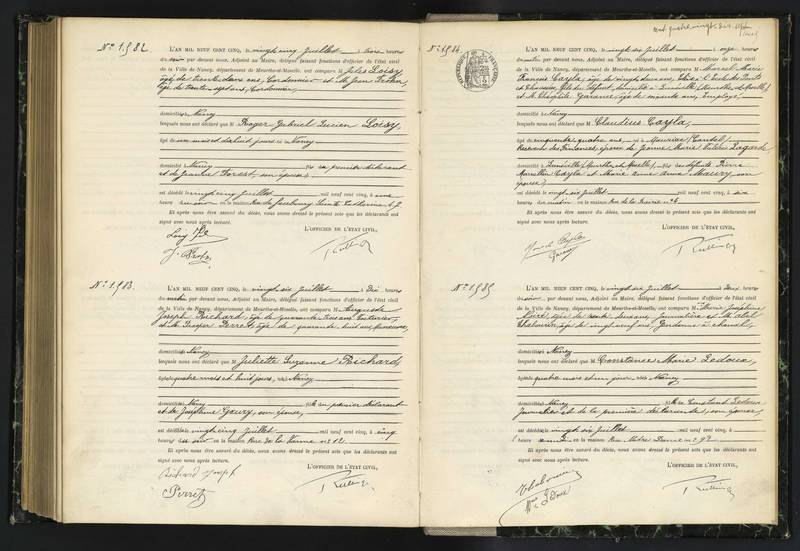 No 1982.
L'AN MIL NEUF CENT CINQ, le vingt cinq Juillet à onze heures
du soir par devant nous, Adjoint au Maire, délégué faisant fonctions d'officier de l'état civil
de la Ville de Nancy, département de Meurthe-et-Moselle, ont comparu M Jules Loisy,
âgé de trente deux ans, Cordonnier et M. Jean
âgé de trente sept ans, Cordonnier,
domiciliés à Nancy
lesquels nous ont déclaré que M Roger Gabriel Lucien Loisy,
âgé de un mois dix huit jours né à Nancy
domicilié à Nancy fils du premier déclarant
et de Jeanne son épouse,
est décédé le vingt cinq Juillet mil neuf cent cinq, à une
heure du soir en la maison Rue du faubourg Sainte Catherine
Et après nous être assuré du décès, nous avons dressé le présent acte que les déclarants ont
signé avec nous après lecture.
L'OFFICIER DE L'ÉTAT CIVIL,
No 1983.
L'AN MIL NEUF CENT CINQ, le vingt six Juillet à Dix heures
du matin par devant nous, Adjoint au Maire, délégué faisant fonctions d'officier de l'état civil
de la Ville de Nancy, département de Meurthe-et-Moselle, ont comparu M Auguste
Joseph Richard, âgé de quarante trois ans
et M. Prosper Perret, âgé de quarante huit ans
domiciliés à Nancy
lesquels nous ont déclaré que M Juliette Suzanne Richard,
âgée de quatre mois et huit jours, née à Nancy
domiciliée à Nancy fille du premier déclarant
et de Joséphine son épouse,
est décédée le vingt cinq Juillet mil neuf cent cinq, à cinq
heures du soir en la maison Rue de la no 12.
Et après nous être assuré du décès, nous avons dressé le présent acte que les déclarants ont
signé avec nous après lecture.
L'OFFICIER DE L'ÉTAT CIVIL,
Richard Joseph
Perret
No 1984.
L'AN MIL NEUF CENT CINQ, le vingt six Juillet à onze heures
du matin par devant nous, Adjoint au Maire, délégué faisant fonctions d'officier de l'état civil
de la Ville de Nancy, département de Meurthe-et-Moselle, ont comparu M Marcel Marie
François Cayla, âgé de vingt deux ans, Elève à l'Ecole des Ponts
et Chaussées, fils du défunt, domicilié à Lunéville (Meurthe et Moselle)
et M. Théophile âgé de ans, Employé,
domicilié à Nancy
lesquels nous ont déclaré que M Claudius Cayla,
âgé de cinquante quatre ans, né à Mauriac (Cantal),
Receveur des Finances, époux de Jeanne Marie Valérie Lagarde
domicilié à Lunéville (Meurthe et Moselle), fils des défunts Pierre
Cayla et Marie Anne son
épouse,
est décédé le vingt six Juillet mil neuf cent cinq, à six
heures du matin en la maison Rue de la Prairie no 4.
Et après nous être assuré du décès, nous avons dressé le présent acte que les déclarants ont
signé avec nous après lecture.
L'OFFICIER DE L'ÉTAT CIVIL,
No 1985
L'AN MIL NEUF CENT CINQ, le vingt six Juillet à Deux heures
du soir par devant nous, Adjoint au Maire, délégué faisant fonctions d'officier de l'état civil
de la Ville de Nancy, département de Meurthe-et-Moselle, ont comparu M Marie Joséphine
âgée de trente ans, Journalière et M.
âgé de vingt neuf ans, Gendarme à cheval,
domiciliés à Nancy
lesquels nous ont déclaré que M Constance Marie Ledoux,
âgée de quatre mois et un jour née à Nancy
domiciliée à Nancy fille de Constant Ledoux
Journalier et de la première déclarante, son épouse,
est décédée le vingt six Juillet mil neuf cent cinq, à
heure en la maison Rue Notre Dame no
Et après nous être assuré du décès, nous avons dressé le présent acte que les déclarants ont
signé avec nous après lecture.
L'OFFICIER DE L'ÉTAT CIVIL,